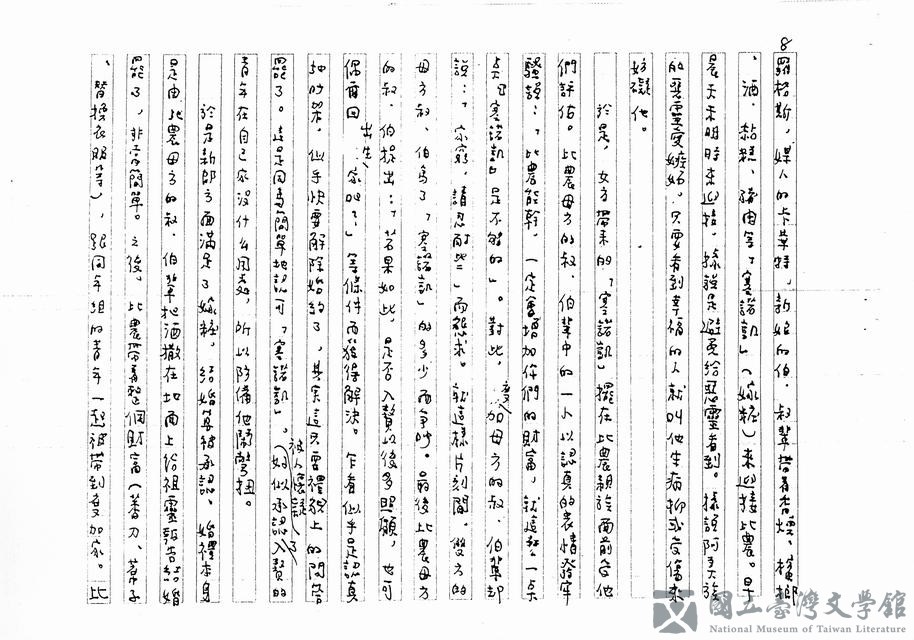 8
羅格斯，媒人的卡草特，新娘的伯、叔輩帶著香煙、檳榔
、酒、黏糕、豬肉等「塞諾凱」（嫁粧）來迎接比農。早
晨天未明時來迎接，據說是避免給惡靈看到。據說阿美族
的惡靈愛嫉妬。只要看到幸福的人就叫他生病抑或受傷來
妨礙他。
於是，女方帶來的「塞諾凱」擺在比農親族面前受他
們評估。比農母方的叔、伯輩中的一人以認真的表情發牢
騷說：「比農能幹，一定會增加你們的財富，就這麼一点
点『塞諾凱』是不夠的」。對此，麥加母方的叔、伯輩却
說：「家窮，請忍耐些」而懇求。就這樣片刻間。雙方的
母方叔、伯為了「塞諾凱」的多少而爭吵。最後比農母方
的叔、伯提出：「若果如此，是否入贅以後多照顧，也可
偶爾回出生家吧？」等條件而獲得解決。乍看似乎是認真
地吵架，似乎快要解除婚約了，其實這只要禮貌上的問答
罷了。這是因為簡單地認可「塞諾凱」，（好似承認入贅的
被人懷疑了
青年在自己家沒什么用處，所以防備他鬧彆扭。
於是新郎方面滿足了嫁粧，結婚算被承認。婚禮本身
是由比農母方的叔、伯輩把酒撒在地面上給祖靈報告結婚
罷了，非常簡單。之後，比農帶著整個財富（蕃刀、茶子
、替換衣服等），跟同年組的青年一起被帶到麥加家。比
國立臺灣文學館
National Museum of Taiwan Literature